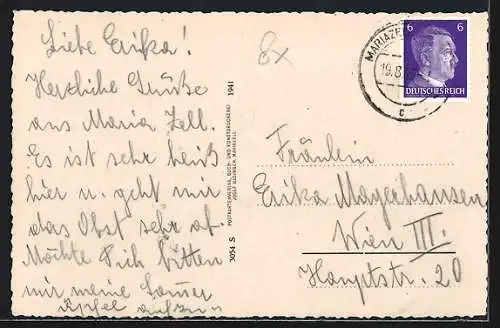 Liebe Erika!
Herzliche Grüße
aus Maria Zell.
Es ist sehr heiß
hier u. geht mir
das Obst sehr ab.
Möchte Dich bitten
mir meine Sauer
äpfel aufzu-
8x
1941
POSTKARTENVERLAG, BUCH- UND KUNSTDRUCKEREI
JOSEF MARIAZELL
3054 S
MARIAZE
19.8
c
6 6
DEUTSCHES REICH
Fräulein
Erika Mayerhausen
Wien III.
Hauptstr. 20